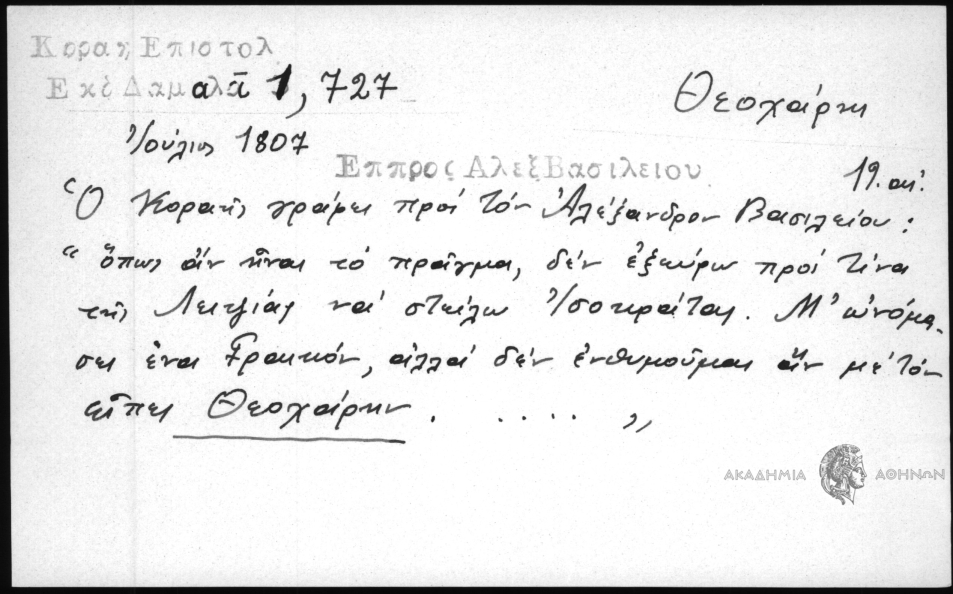 Κοραη Επιστολ
Εκδ Δαμαλᾶ 1, 727
Θεοχάρης
Ἰούλιος 1807
Επ προς Αλεξ Βασιλειου
19. αἰ.
Ὁ Κοραῆς γράφει πρὸς τὸν Ἀλέξανδρον Βασιλείου:
"ὅπως ἂν ἦναι τὸ πρᾶγμα, δὲν ἐξεύρω πρὸς τίνα
τῆς Λειψίας νὰ στείλω Ἰσοκράτας. Μ' ὠνόμα-
σες ἕνα Γραικόν, ἀλλὰ δὲν ἐνθυμοῦμαι ἂν μὲ τὸν
εἶπες Θεοχάρην . . . . . "
ΑΚΑΔΗΜΙΑ ΑΘΗΝΩΝ